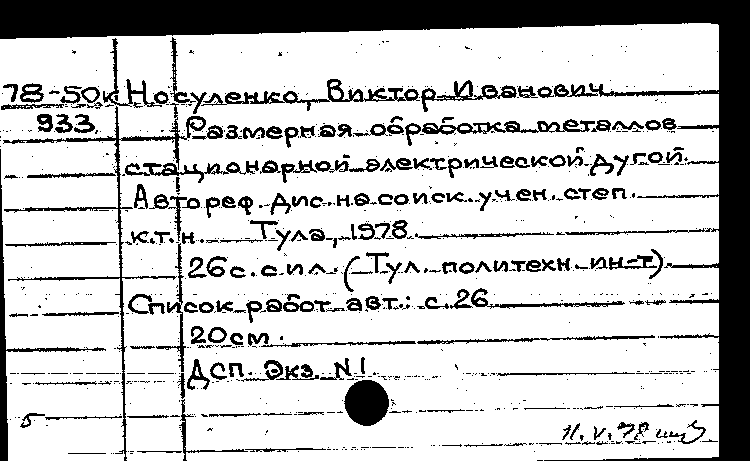 78-50к Носуленко, Виктор Иванович
933 Размерная обработка металлов
стационарной электрической дугой.
Автореф. дис. на соиск. учен. степ.
к.т.н. Тула, 1978.
26с. с ил. (Тул. политехн. ин-т).
Список работ авт.: с. 26
20см.
ДСП. Экз. N1.
5
11.V.78